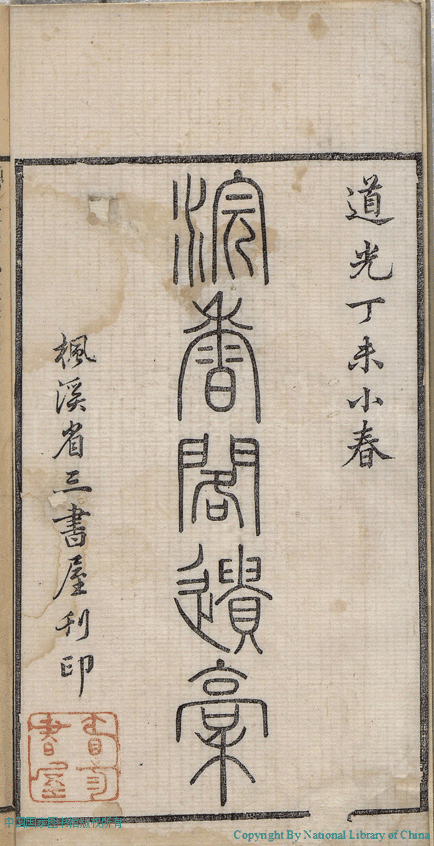 道光丁未小春
浣香閣遺稾
楓溪省三書屋刊印
中国国家图书馆版权所有
Copyright By National Library of China